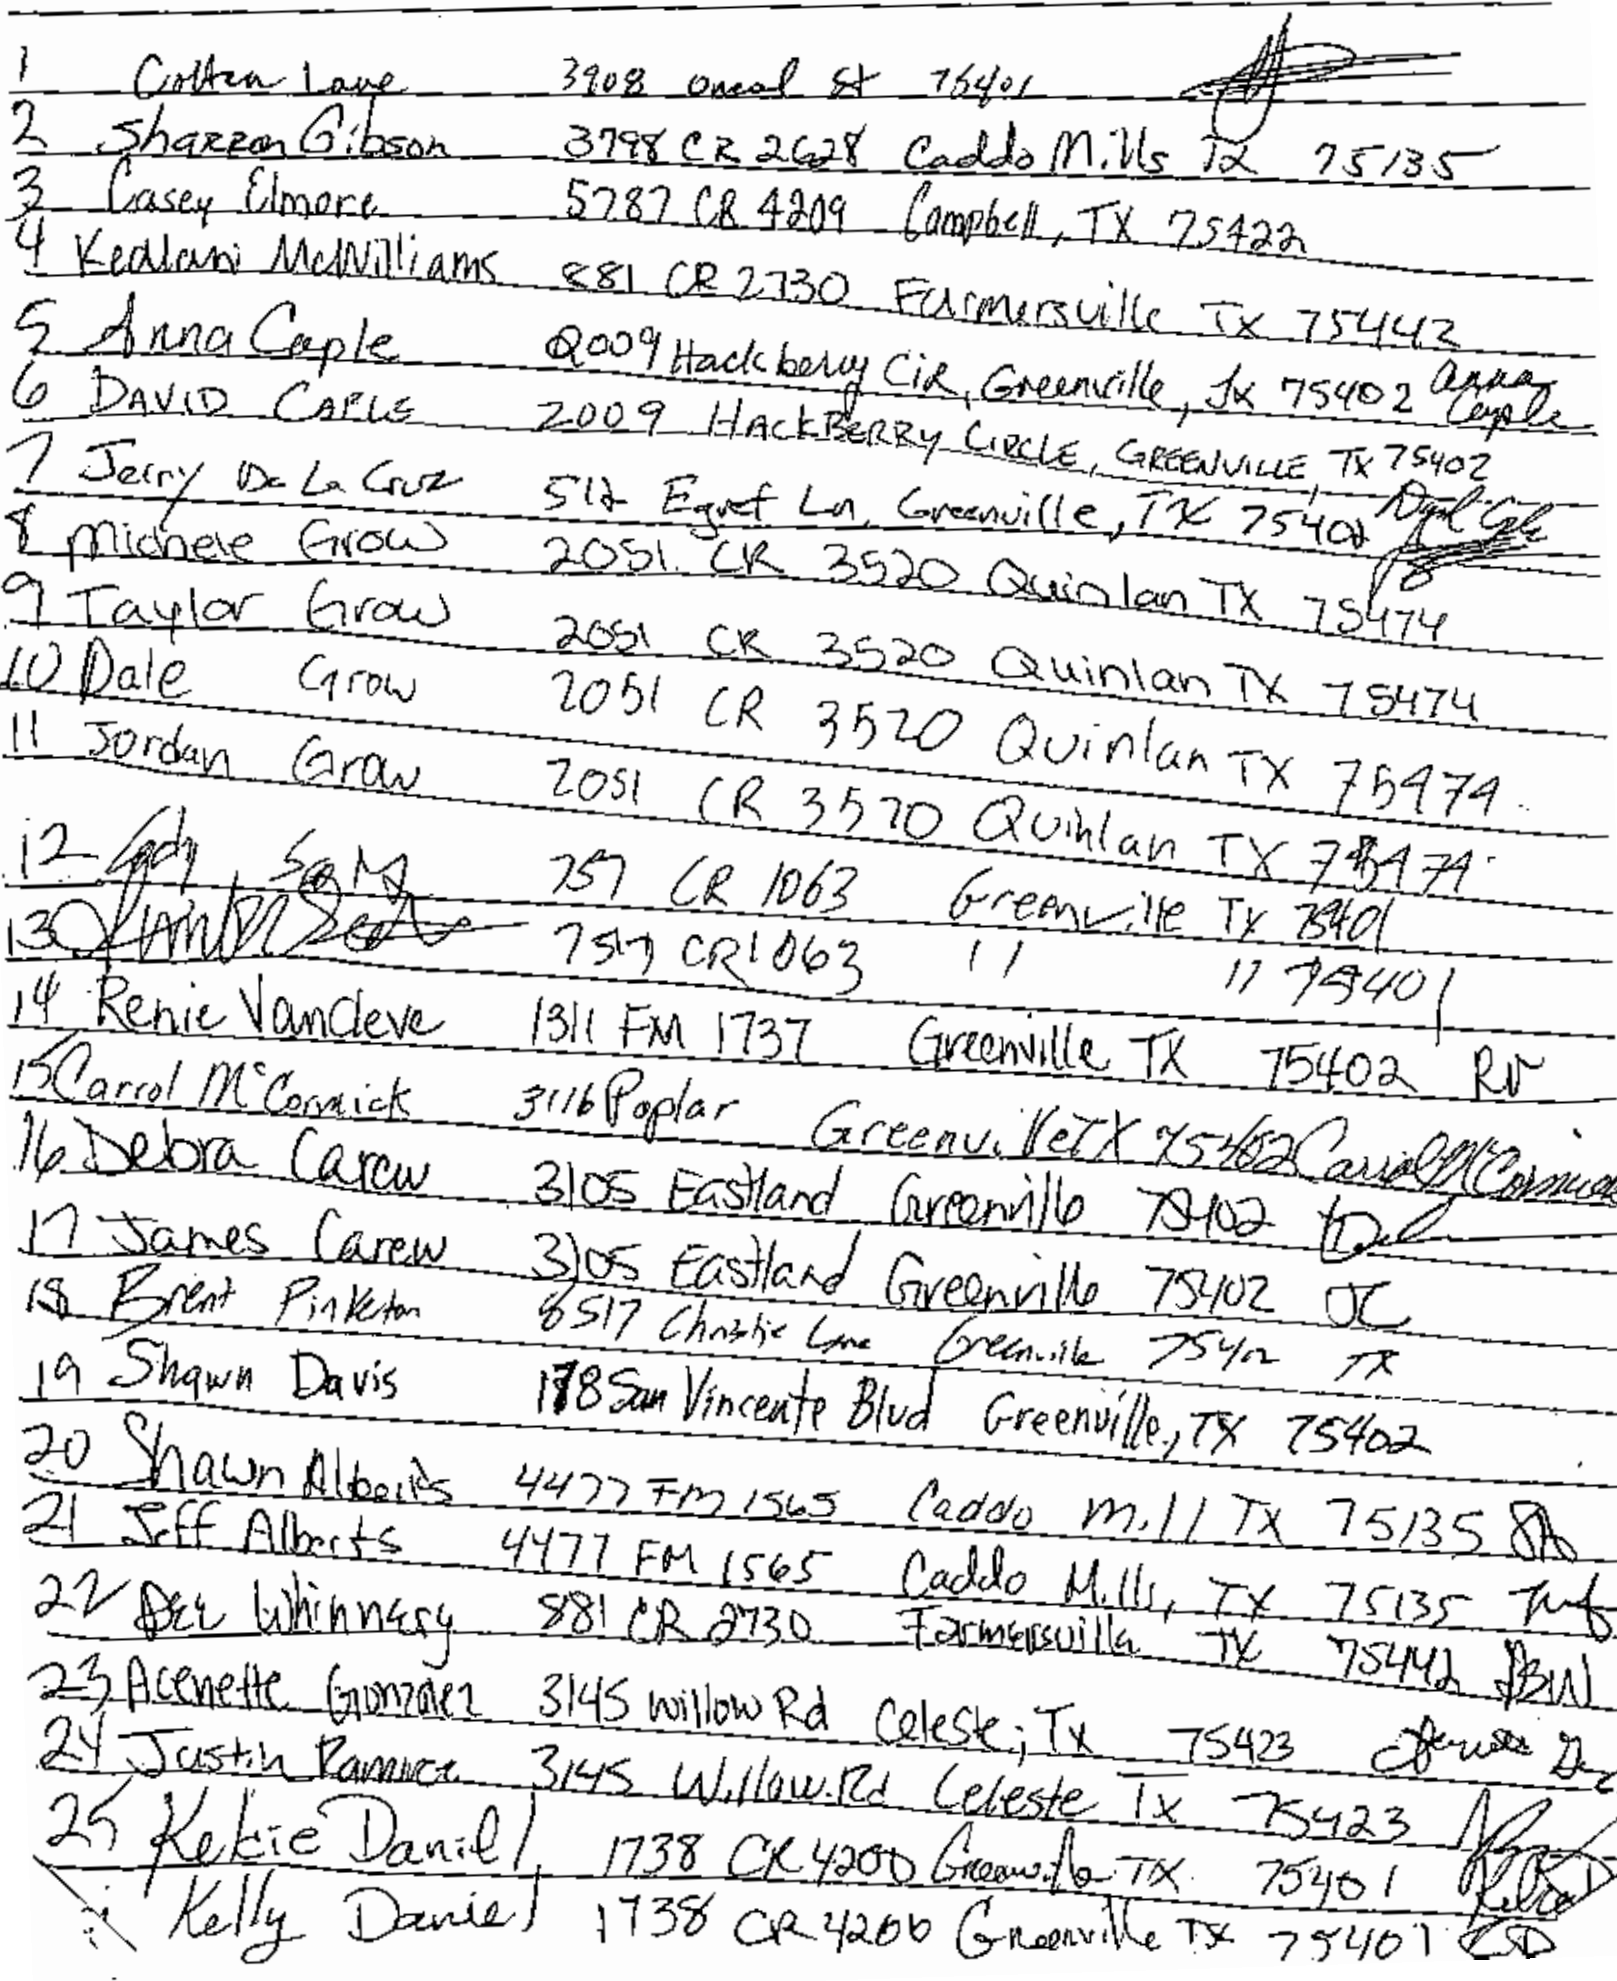 1 Colten Lane 3908 oneal St 75401
2 Sharron Gibson 3798 CR 2628 Caddo Mills TX 75135
3 Casey Elmore 5787 CR 4209 Campbell, TX 75422
4 Kealani McWilliams 881 CR 2730 Farmersville TX 75442
5 Anna Caple 2009 Hackberry Cir, Greenville, Tx 75402 Anna Caple
6 DAVID CAPLE 2009 HACKBERRY CIRCLE, GREENVILLE, TX 75402
7 Jerry De La Cruz 512 Egret Ln, Greenville, TX 75402
8 Michele Grow 2051 CR 3520 Quinlan TX 75474
9 Taylor Grow 2051 CR 3520 Quinlan TX 75474
10 Dale Grow 2051 CR 3520 Quinlan TX 75474
11 Jordan Grow 2051 CR 3520 Quinlan TX 75474
12 757 CR 1063 Greenville TX 75401
13 757 CR 1063 11 11 75401
14 Renie Vancleve 1311 FM 1737 Greenville TX 75402 RV
15 Carrol McCormick 3116 Poplar Greenville TX 75402 Carrol McCormick
16 Debra Carew 3105 Eastland Greenville 75402
17 James Carew 3105 Eastland Greenville 75402 JC
18 Brent Pinkerton 8517 Christie Lane Greenville 75402 TX
19 Shawn Davis 178 San Vincente Blvd Greenville, TX 75402
20 Shawn Alberts 4477 FM 1565 Caddo Mill TX 75135 SA
21 Jeff Alberts 4477 FM 1565 Caddo Mills, TX 75135
22 Dee Whinnery 881 CR 2730 Farmersville TX 75442 DBW
23 Acenette Gonzalez 3145 Willow Rd Celeste, Tx 75423
24 Justin Ramirez 3145 Willow Rd Celeste Tx 75423
25 Kelcie Daniel 1738 CR 4200 Greenville TX 75401
Kelly Daniel 1738 CR 4200 Greenville TX 75401 KSD